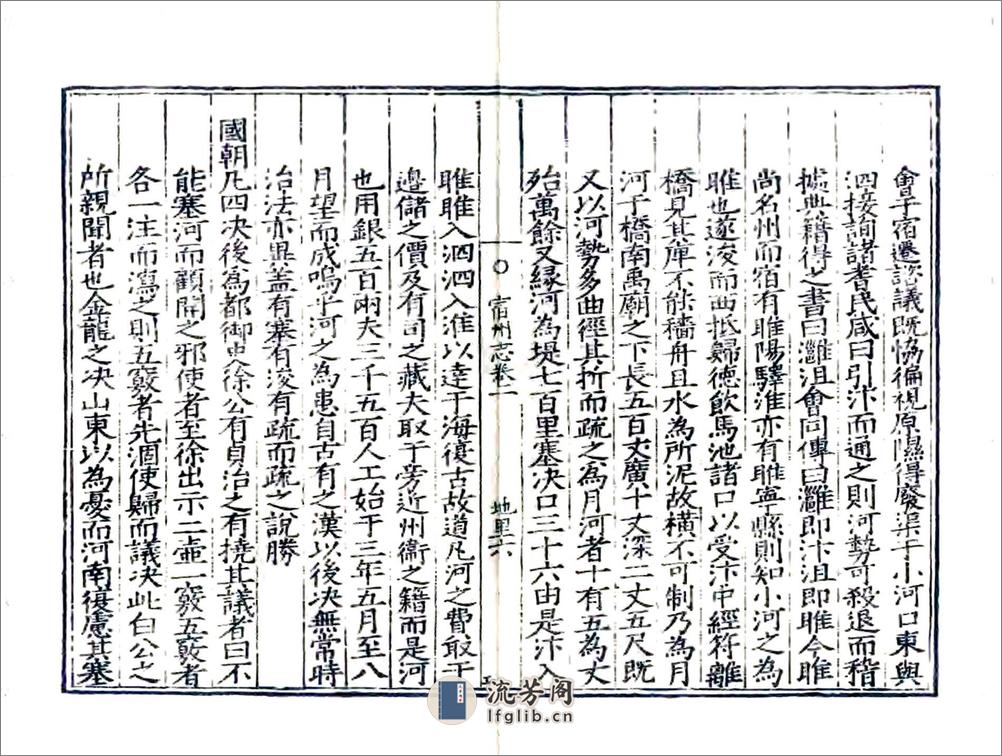 會于宿遷詔議既恊徧視原隰得廢渠于小河口東與
泗接詢諸耆民咸曰引汴而通之則河勢可殺退而稽
㨿典籍得之書曰灉沮會同傳曰灉即汴沮即睢今睢
尚名州而宿有睢陽驛淮亦有睢寧縣則知小河之為
睢也遂浚而西抵歸德飲馬池諸口以受汴中經符離
橋見其庳不能檣舟且水為所泥故橫不可制乃為月
河于橋南禹廟之下長五百丈廣十丈深二丈五尺既
又以河勢多曲徑其折而疏之為月河者十有五為丈
殆萬餘又緣河為堤七百里塞決口三十六由是汴入
宿州志卷一
地里六
睢睢入泗泗入淮以達于海復古故道凡河之費取于
邊儲之價及有司之藏夫取于旁近州衞之籍而是河
也用銀五百兩夫三千五百人工始于三年五月至八
月望而成嗚乎河之為患自古有之漢以後決無常時
治法亦異葢有塞有浚有疏而疏之說勝
國朝凡四決後為都御史徐公有貞治之有撓其議者曰不
能塞河而顧開之邪使者至徐出示二壺一竅五竅者
各一注而瀉之則五竅者先涸使歸而議決此白公之
所親聞者也金龍之決山東以為憂而河南復慮其塞
流芳阁
lfglib.cn